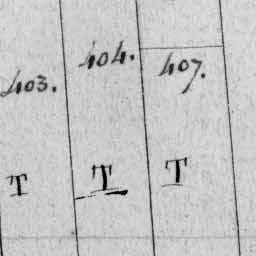 403. 404. 407.
T T T